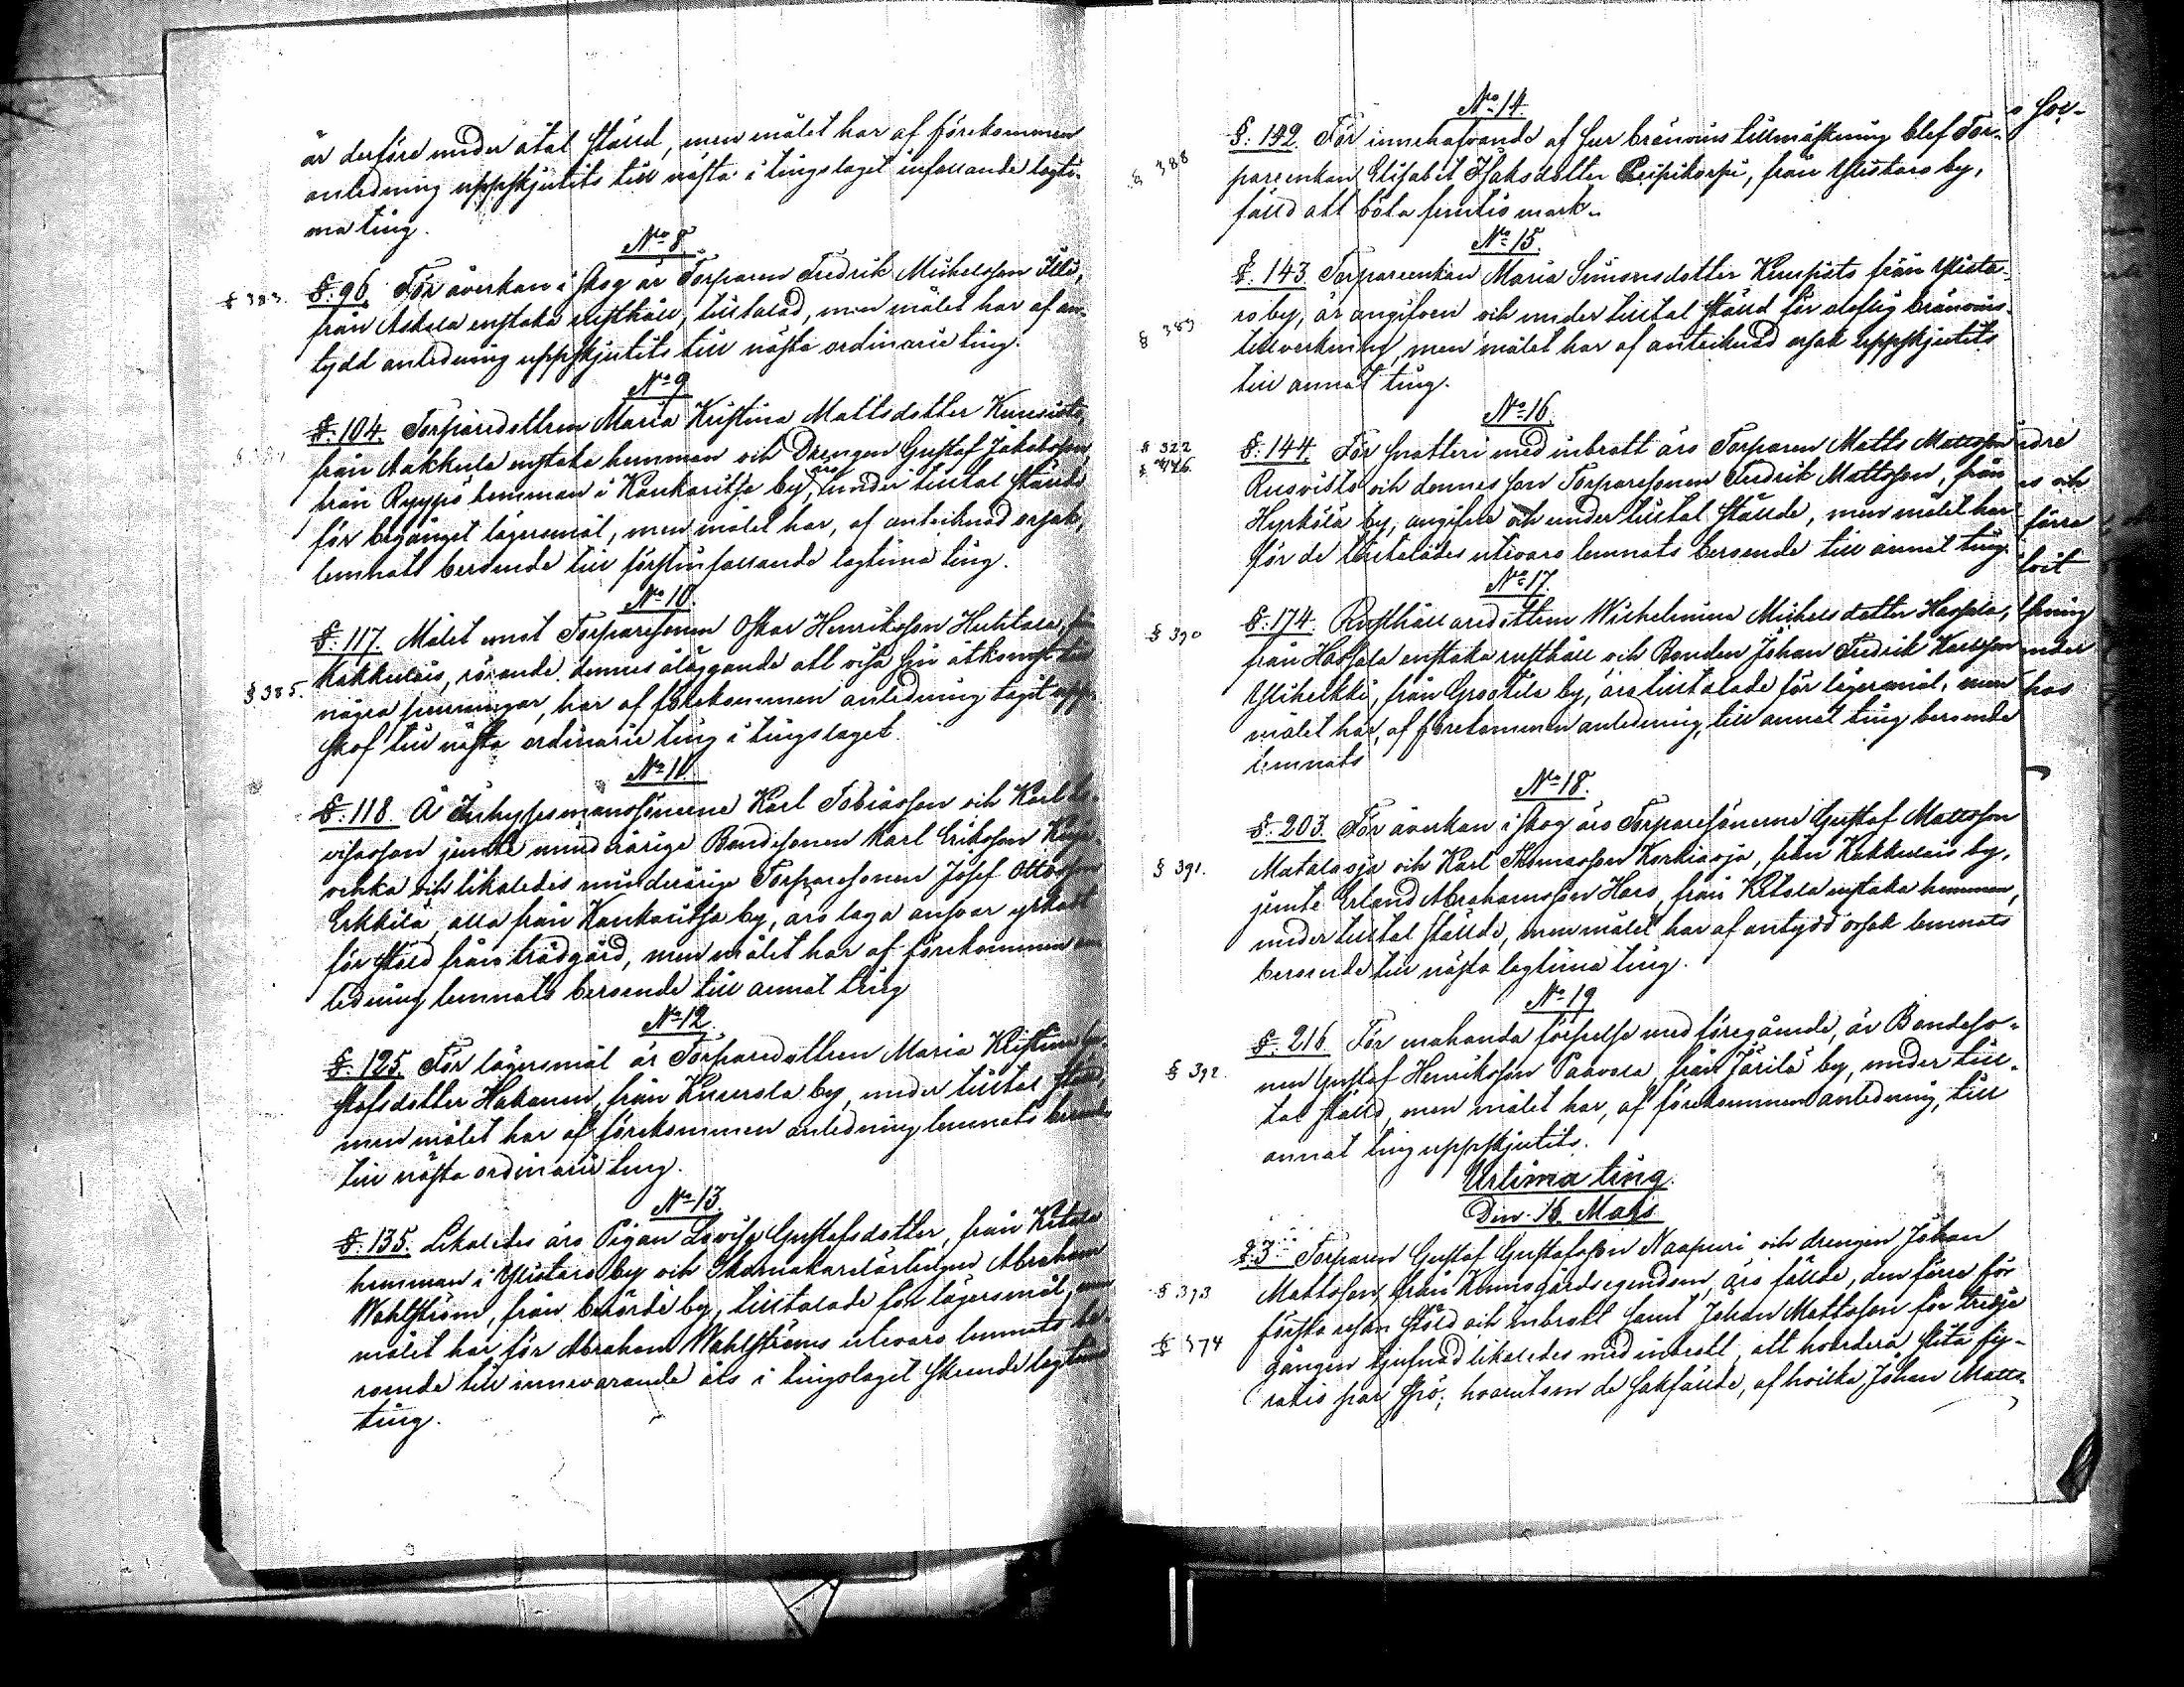 är derföre under åtal stäld, men målet har af förekommen
anledning uppskjutits till nästa i tingslaget infallande lagti-
ma ting.
No 8.
§ 383.
§. 96. För åverkan i skog är Torparen Fredrik Michelsson Illi,
från Askala enstaka rusthåll, tilltalad, men målet har af an-
tydd anledning uppskjutits till nästa ordinarie ting.
No 9
§. 104. Torparedottren Maria Kristina Mattsdotter Kuusisto,
från Aakkula enstaka hemman och Drengen Gustaf Jakobsson,
från Ryyppö hemman i Kankaritsa by, äro under tilltal stälde
för begånget lägersmål, men målet har, af anteiknad orsak,
lemnats beroende till förstinfallande lagtima ting.
No 10.
§. 117. Målet emot Torparesonen Oskar Henriksson Huhtala, från
Kakkulais, rörande dennes åläggande att visa sin åtkomst till
§ 385.
några penningar, har af förekommen anledning tagit upp-
skof till nästa ordinarie ting i tingslaget.
No 11.
§. 118. Å Inhysesmanssönerne Karl Tobiasson och Karl
jemte minderårige Bondesonen Karl Eriksson
och likaledes minderårige Torparesonen Josef Ottosson
Erkkilä, alla från Kankaritsa by, äro laga ansvar yrkadt
för stöld från trädgård, men målet har af förekommen an-
ledning lemnats beroende till annat ting
No 12.
§. 125. För lägersmål är Torparedottren Maria Kristina Gu-
stafsdotter Hakanen, från Kuusela by, under tilltal stäld,
men målet har af förekommen anledning lemnats beroende
till nästa ordinarie ting.
No 13.
§. 135. Likaledes äro Pigan Lovisa Gustafsdotter, från Ketola
hemman i Ylistaro by och Skomakarelärlingen Abraham
Wahlström, från by, tilltalade för lägersmål, men
målet har för Abraham Wahlströms utevaro lemnats be-
roende till innevarande års i tingslaget skeende lagtima
ting.
No 14.
§ 388
§. 142. För innehafvande af sur bränvins tillmäskning blef Tor-
pareenkan Elisabet Isaksdotter Peipikorpi, från Ylistaro by,
fäld att böta femtio mark.
No 15.
§. 143. Torpareenkan Maria Simonsdotter Kuusisto från Ylista-
§ 389
ro by, är angifven och under tilltal stäld för olaflig bränvins-
tillverkning, men målet har af anteiknad orsak uppskjutits
till annat ting.
No 16.
§ 322
§ 446.
§. 144. För snatteri med inbrott äro Torparen Matts Mattsson
Rusvisto och dennes son Torparesonen Fredrik Mattsson, från
Hyrkölä by, angifne och under tilltal stälde, men målet har
för de tilltalades utevaro lemnats beroende till annat ting.
No 17.
§ 390
§. 174. Rusthållaredottern Wilhelmina Michelsdotter Hassala,
från Hassala enstaka rusthåll och Bonden Johan Fredrik Karlsson
Ylihelkki, från Grootila by, äro tilltalade för lägersmål, men
målet har, af förekommen anledning, till annat ting beroende
lemnats
No 18.
§. 203. För åverkan i skog äro Torparesönerne Gustaf Mattsson
§ 391.
Mataoja och Karl Thomasson Korkiaoja, från Kakkulais by,
jemte Erland Abrahamsson Haro, från Ketola enstaka hemman,
under tilltal stälde, men målet har af antydd orsak lemnats
beroende till nästa lagtima ting.
No 19
§. 216. För enahanda förseelse med föregående, är Bondeso-
§ 392.
nen Gustaf Henriksson Paavola från Järilä by, under till-
tal stäld, men målet har, af förekommen anledning, till
annat ting uppskjutits.
Urtima ting.
Den 16. Mars
§. 3. Torparen Gustaf Gustafsson Naapuri och drengen Johan
§ 393
Mattsson, från Kumogårds egendom, äro fälde, den förre för
första resan stöld och inbrott samt Johan Mattsson för tredje
§ 374
gången tjufnad likaledes med inbrott, att hvardera slita fy-
ratio par spö; hvarutom de sakfälde, af hvilka Johan Matts-